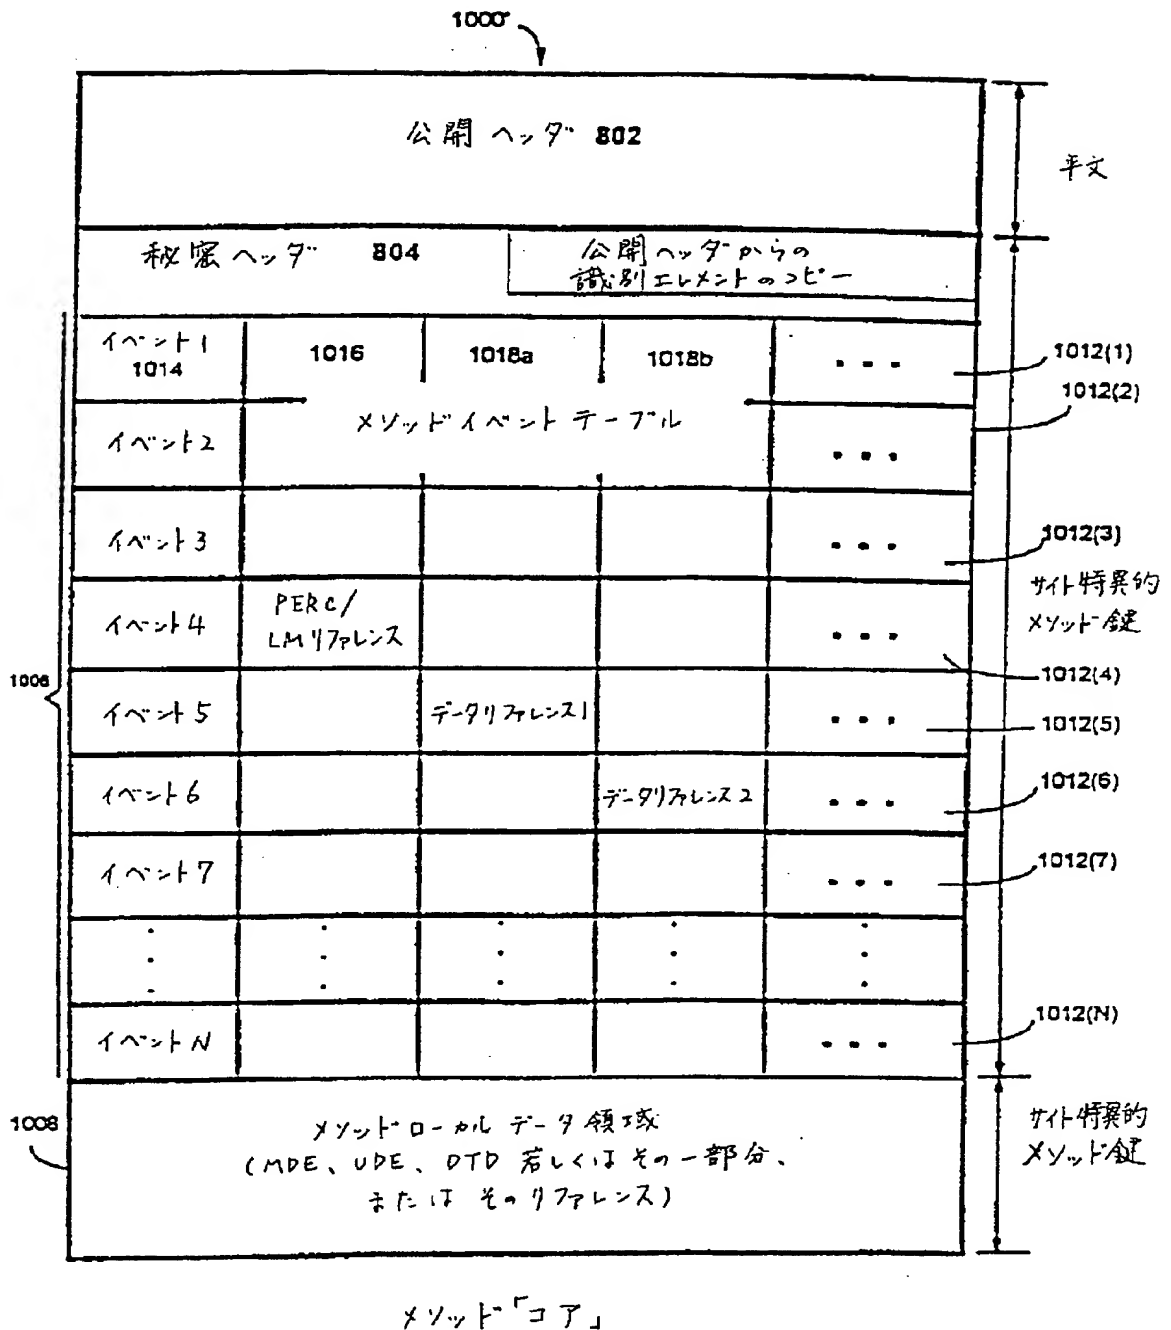 1000
公開ヘッダ 802
平文
秘密ヘッダ 804
公開ヘッダからの
識別エレメントのコピー
イベント1
1014
1016
1018a
1018b
...
1012(1)
1012(2)
メソッドイベントテーブル
イベント2
...
イベント3
...
1012(3)
サイト特異的
メソッド鍵
イベント4
PERC/
LMリファレンス
...
1012(4)
1006
イベント5
データリファレンス1
...
1012(5)
イベント6
データリファレンス2
...
1012(6)
イベント7
...
1012(7)
イベントN
...
1012(N)
1008
メソッドローカルデータ領域
(MDE、UDE、DTD 若しくはその一部分、
またはそのリファレンス)
サイト特異的
メソッド鍵
メソッド「コア」